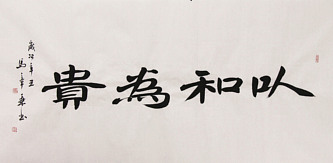 以和為貴
歲次辛丑